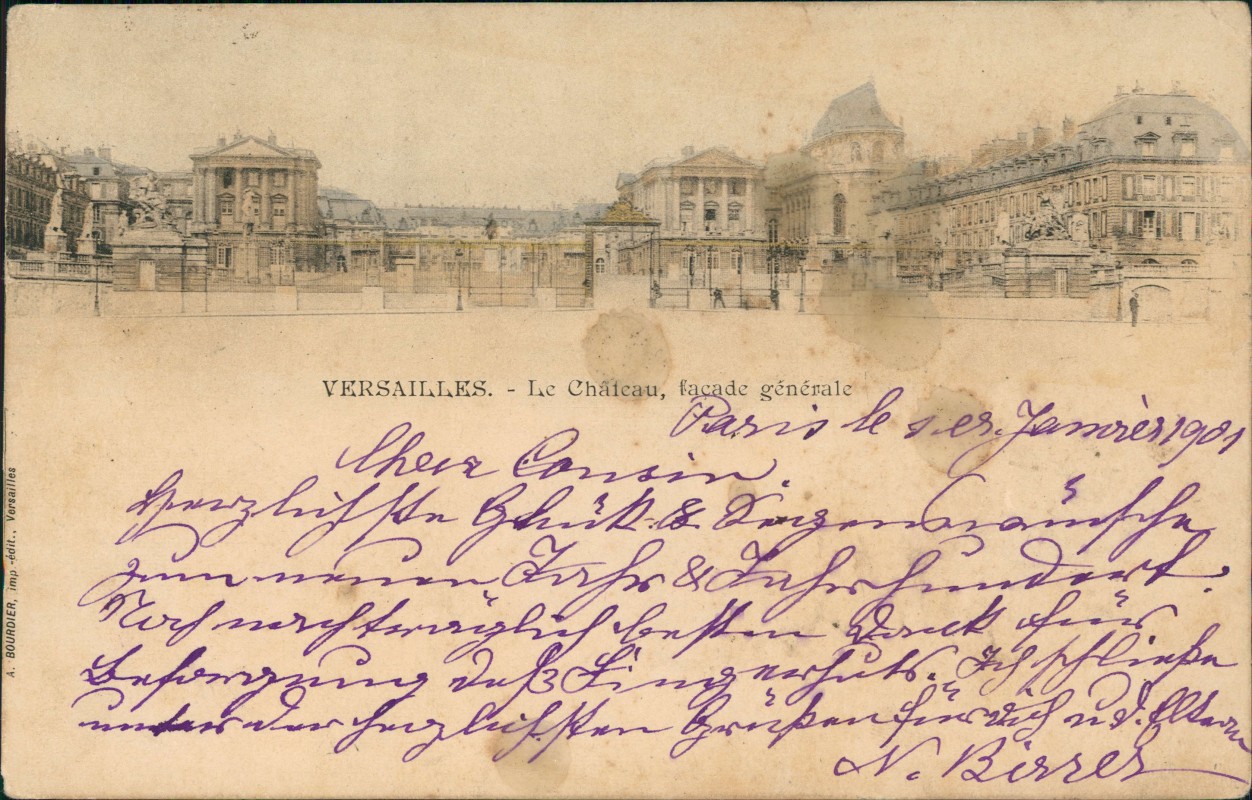 VERSAILLES. - Le Château, façade générale
Paris le 1er Janvier 1901
Cher Cousin.
Herzlichste Glück & Segenswünsche
zum neuen Jahr & Jahrhundert.
Noch nachträglich besten Dank für
Besorgung deß Fingerhuts. Ich schließe
unter den herzlichsten Grüßen für dich u d. Eltern
N. Birrer
A. BOURDIER, imp.-édit., Versailles